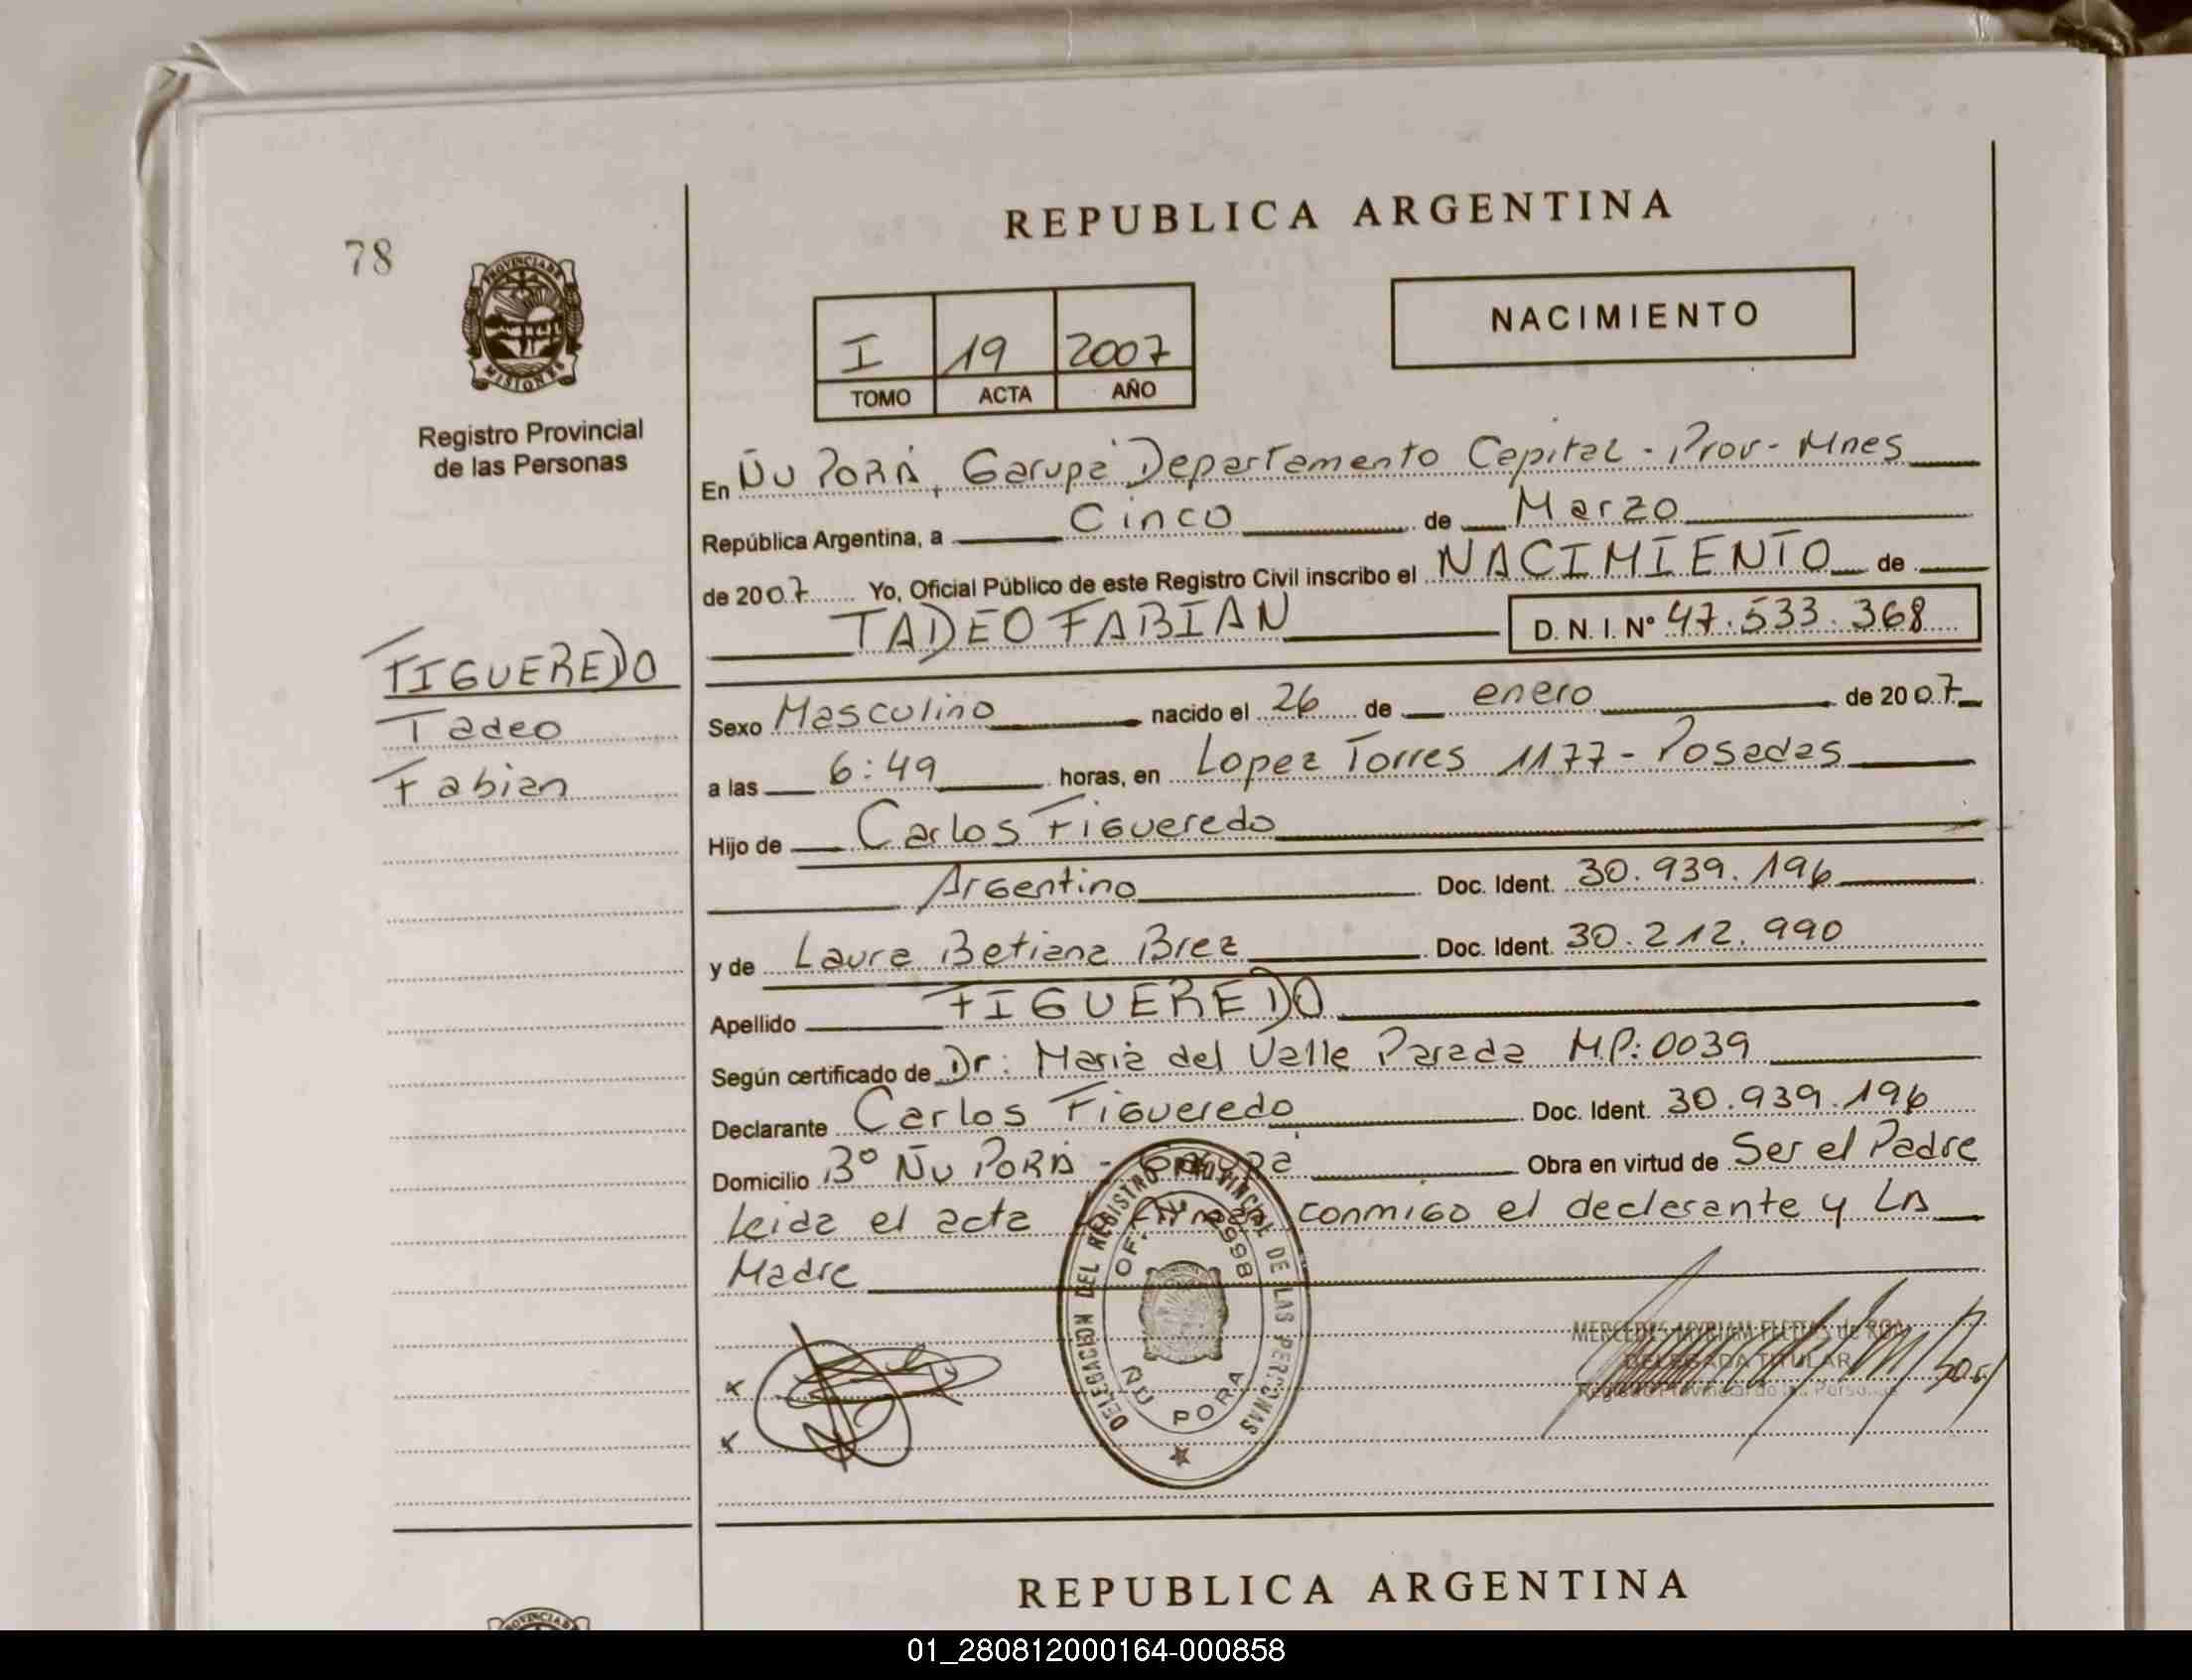 78
PROVINCIA DE
MISIONES
Registro Provincial
de las Personas
REPUBLICA ARGENTINA
I 19 2007
TOMO ACTA AÑO
NACIMIENTO
En ÑU PORÁ, Garupá Departamento Capital - Prov - Mnes
República Argentina, a Cinco de Marzo
de 2007 Yo, Oficial Público de este Registro Civil inscribo el NACIMIENTO de
TADEO FABIAN D. N. I. Nº 47.533.368
FIGUEREDO
Tadeo
Fabian
Sexo Masculino nacido el 26 de enero de 2007
a las 6:49 horas, en Lopez Torres 1177 - Posadas
Hijo de Carlos Figueredo
Argentino Doc. Ident. 30.939.196
y de Laura Betiana Brez Doc. Ident. 30.212.990
Apellido FIGUEREDO
Según certificado de Dr: Maria del Valle Parada M.P: 0039
Declarante Carlos Figueredo Doc. Ident. 30.939.196
Domicilio Bº ÑU PORÁ - Garupá Obra en virtud de Ser el Padre
Leida el acta Firman conmigo el declarante y LA
Madre
DELEGACION DEL REGISTRO PROVINCIAL DE LAS PERSONAS
OF. 2998
ÑU PORA
MERCEDES MYRIAM FLEITAS de ROA
DELEGADA TITULAR
Registro Provincial de las Personas
x
x
REPUBLICA ARGENTINA
PROVINCIA DE
01_280812000164-000858